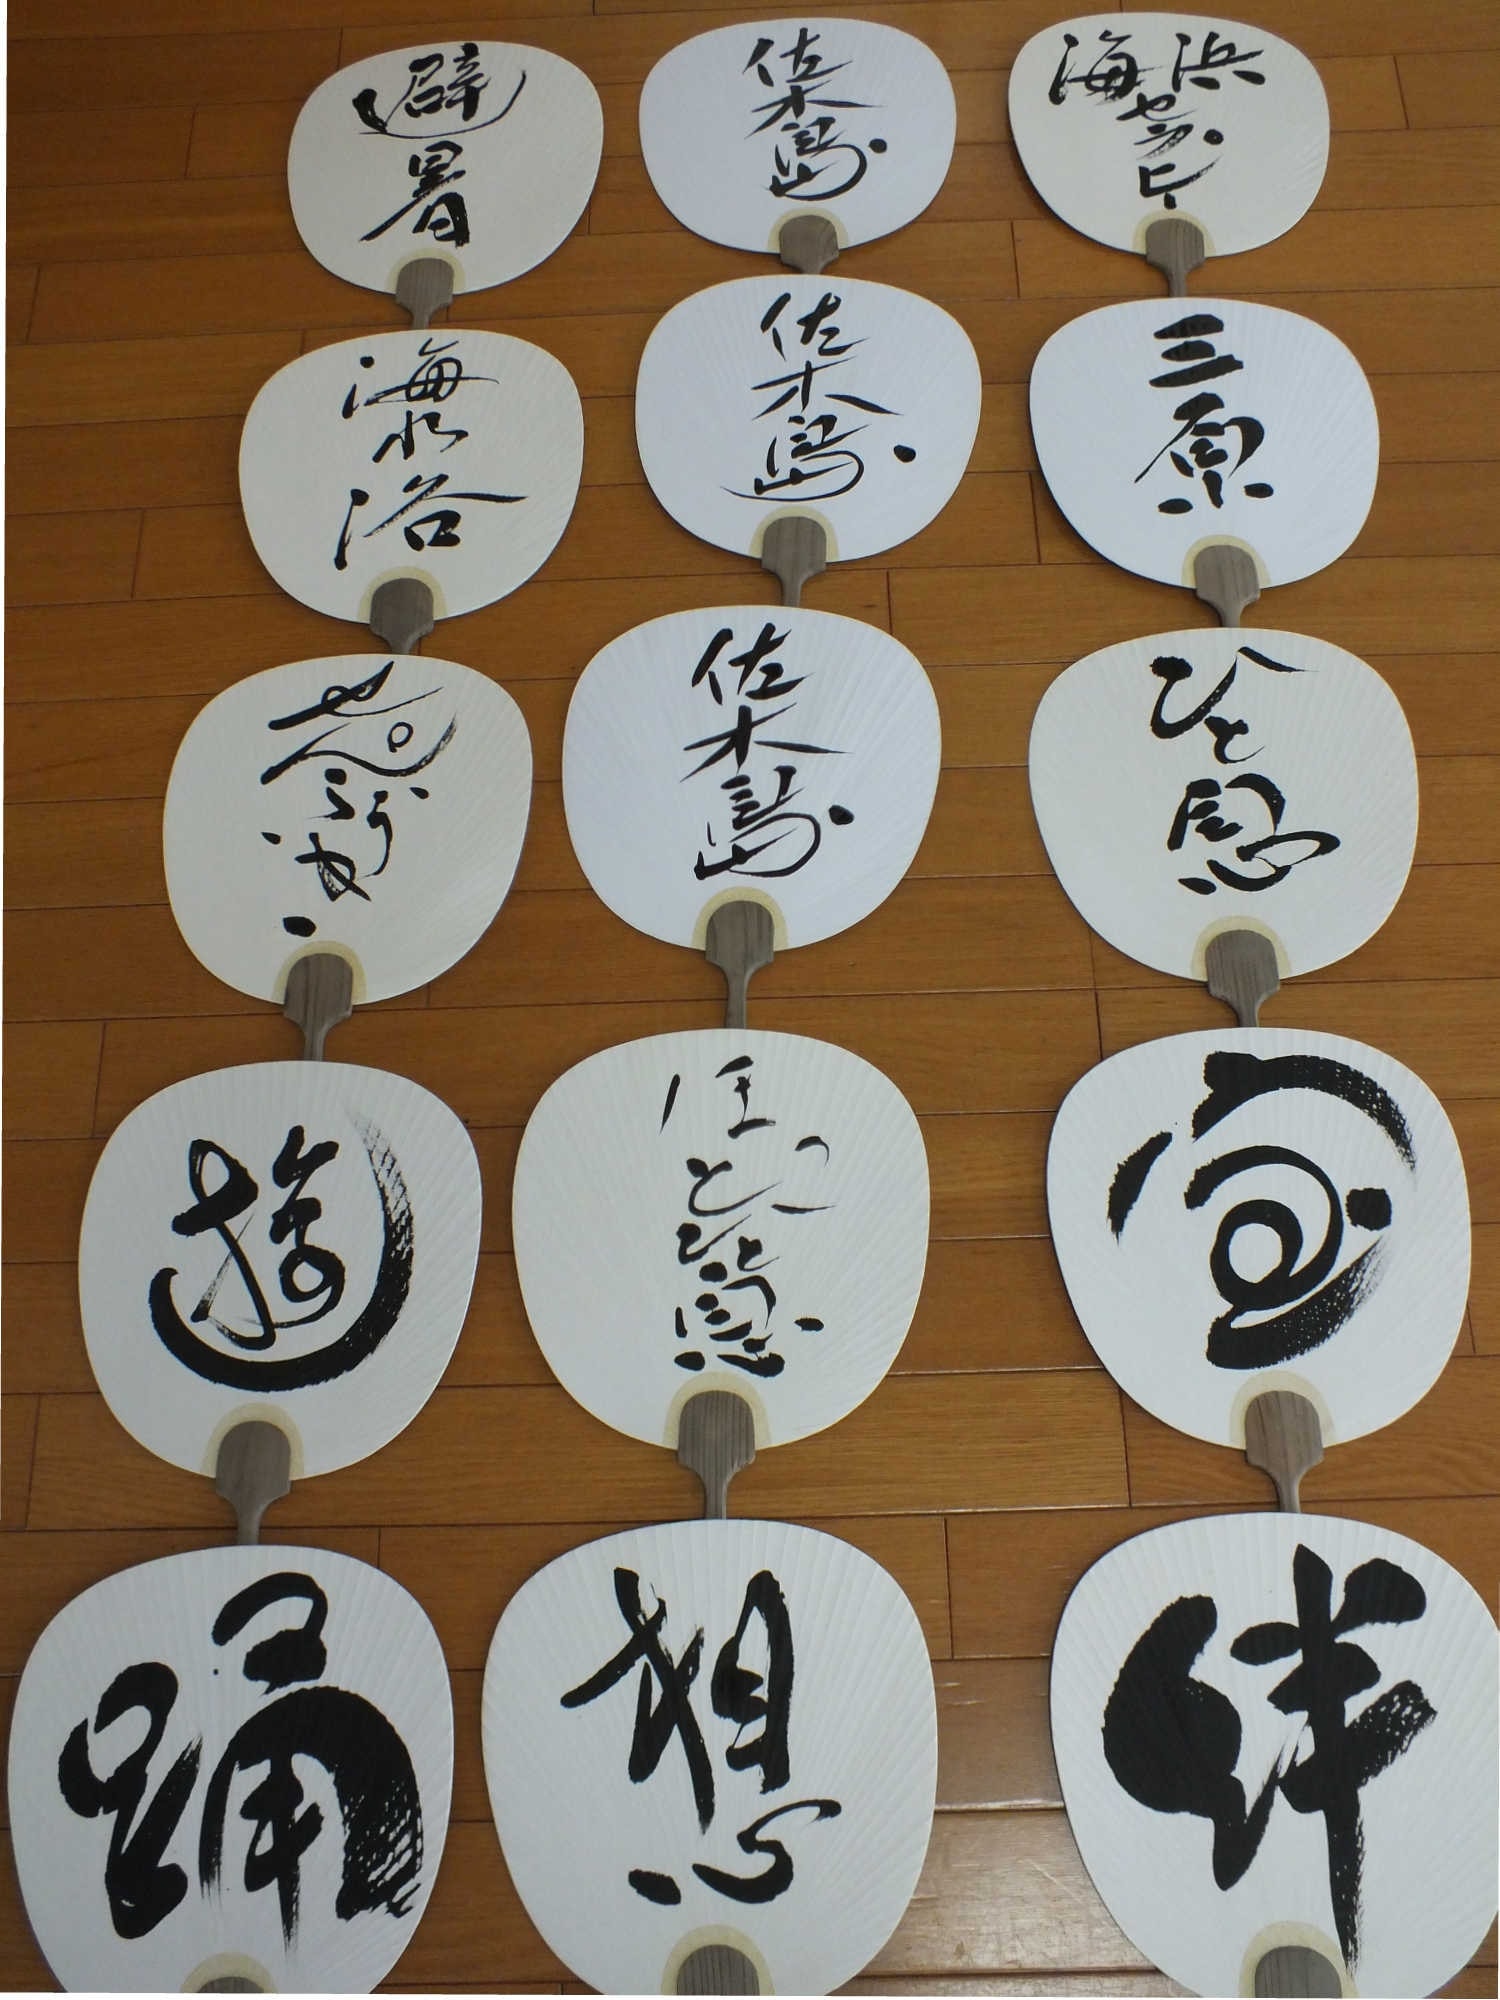 避暑
佐木島
海浜
セラピー
海水浴
佐木島
三原
せんこう
花火
佐木島
ひと息
遊
ほっと
ひと息
宝
踊
想
絆